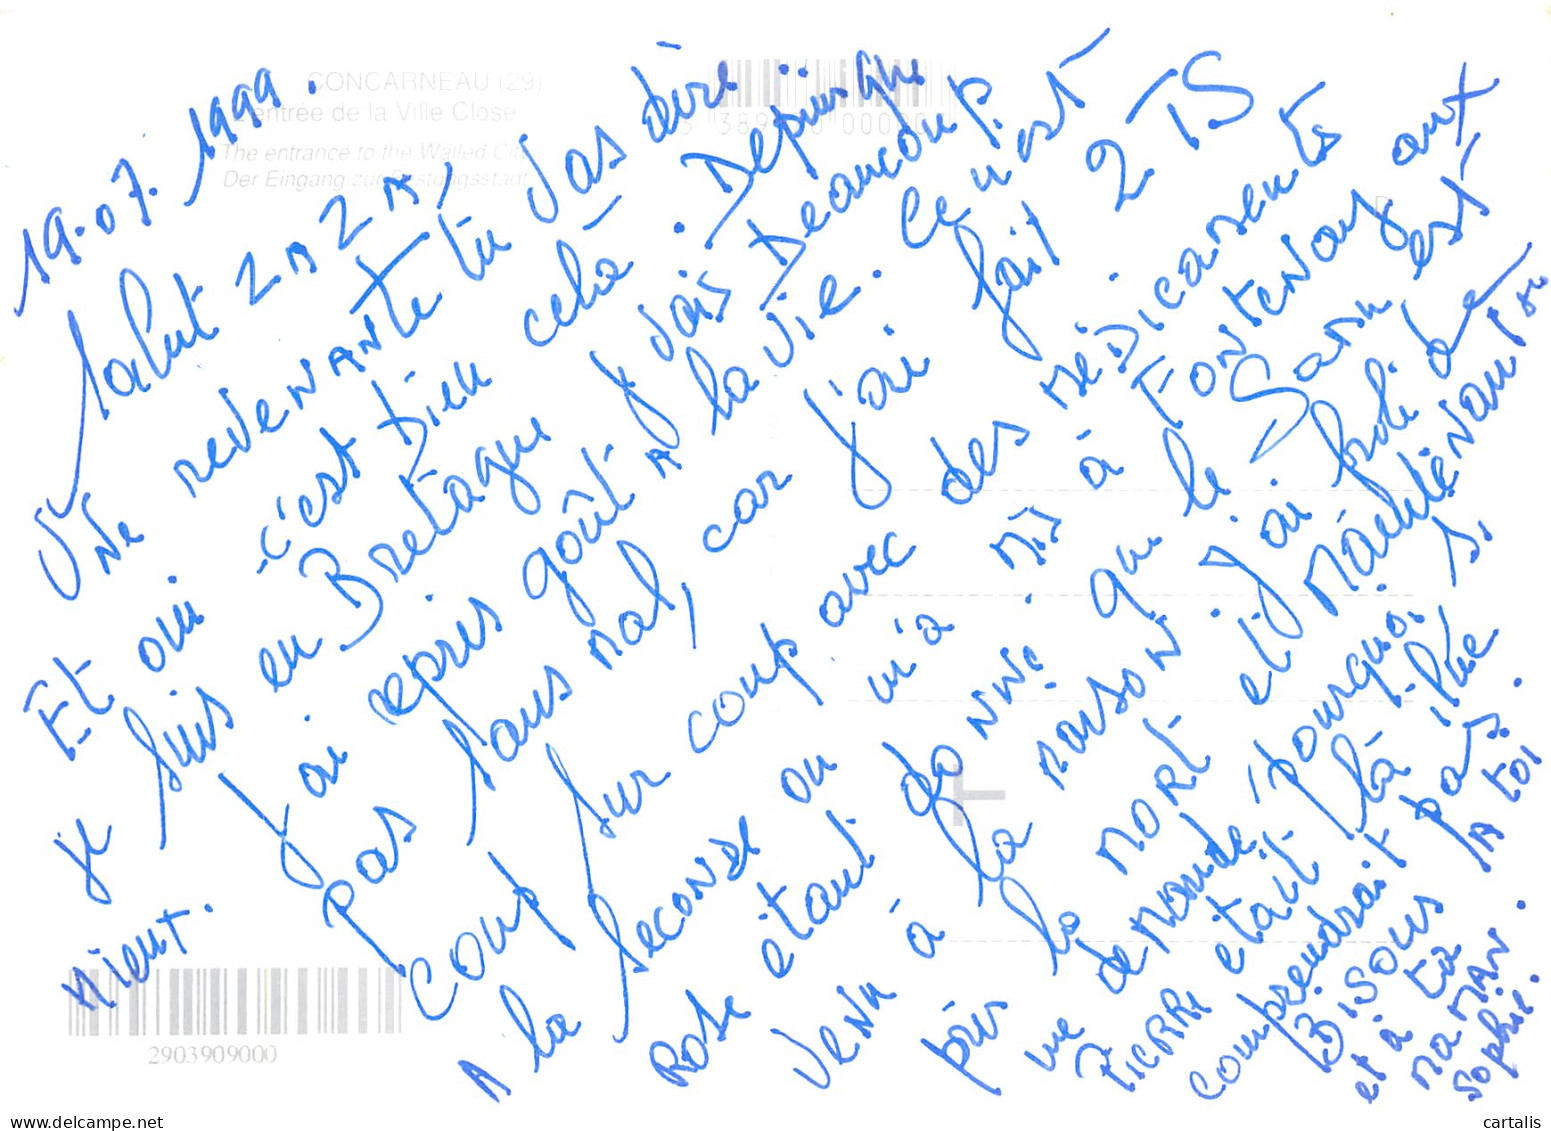 CONCARNEAU (29)
L'entrée de la Ville Close
The entrance to the Walled City
Der Eingang zur Festungsstadt
19.07.1999.
Salut ZAZA,
Une revenante tu vas dire.
Et oui c'est bien celà. Depuis que
je suis en Bretagne je vais beaucoup
mieux. J'ai repris goût A la vie. Ce n'est
pas sans mal, car j'ai fait 2 TS
coup sur coup avec des médicaments
A la seconde on m'a mis à Fontenay aux
Rose étant donné que le Samu est
venu à la maison. J'ai frolé de
près la mort et maintenant on
me demande pourquoi si
PIERRE était là il ne
comprendrait pas.
Bisous A toi
et à ta
maman.
Sophie.
2903909000
cartalis
www.delcampe.net